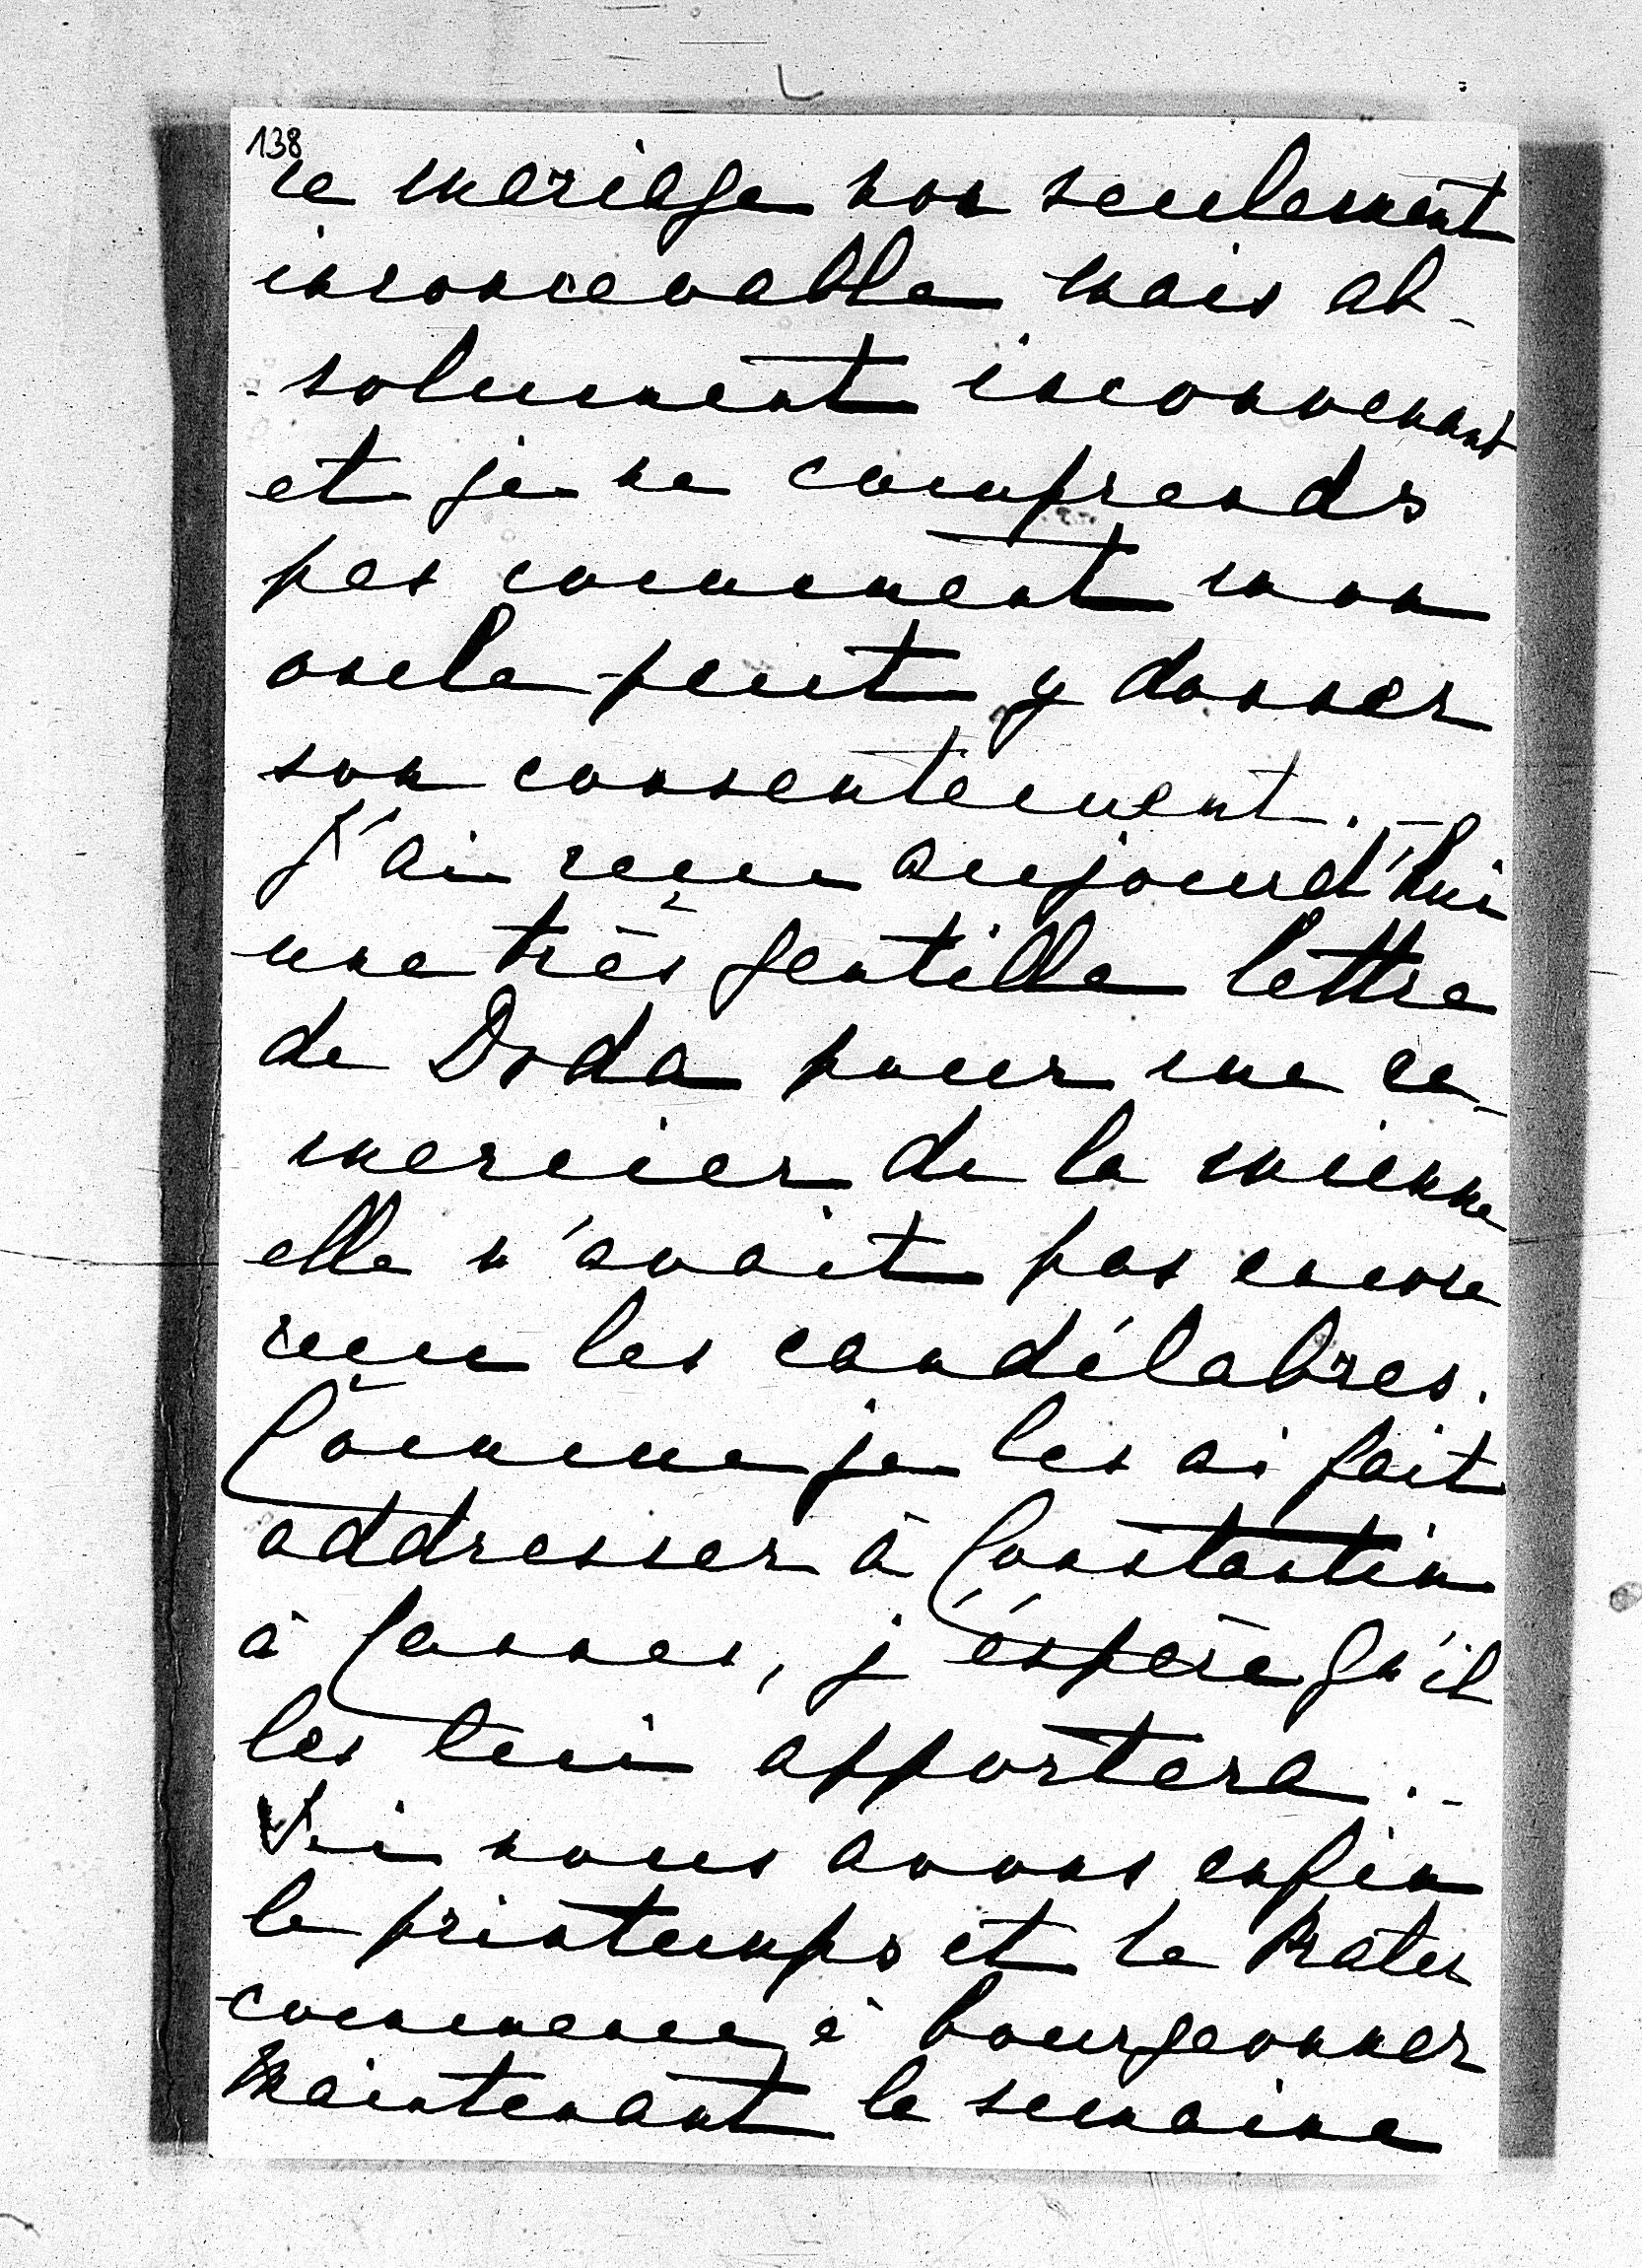 138
ce mariage non seulement
inconcevable mais ab-
-solument inconvenant
et je ne comprends
pas comment mon
oncle peut y donner
son consentement. -
J'ai reçu aujourd'hui
une très gentille lettre
de Doda pour me re-
mercier de la mienne
elle n'avait pas encore
reçu les candélabres.
Comme je les ai fait
addresser à Constantin
à Cannes, j'éspère qu'il
les lui apportera. -
Ici nous avons enfin
le printemps et le Prater
commence à bourgeonner
Maintenant la semaine